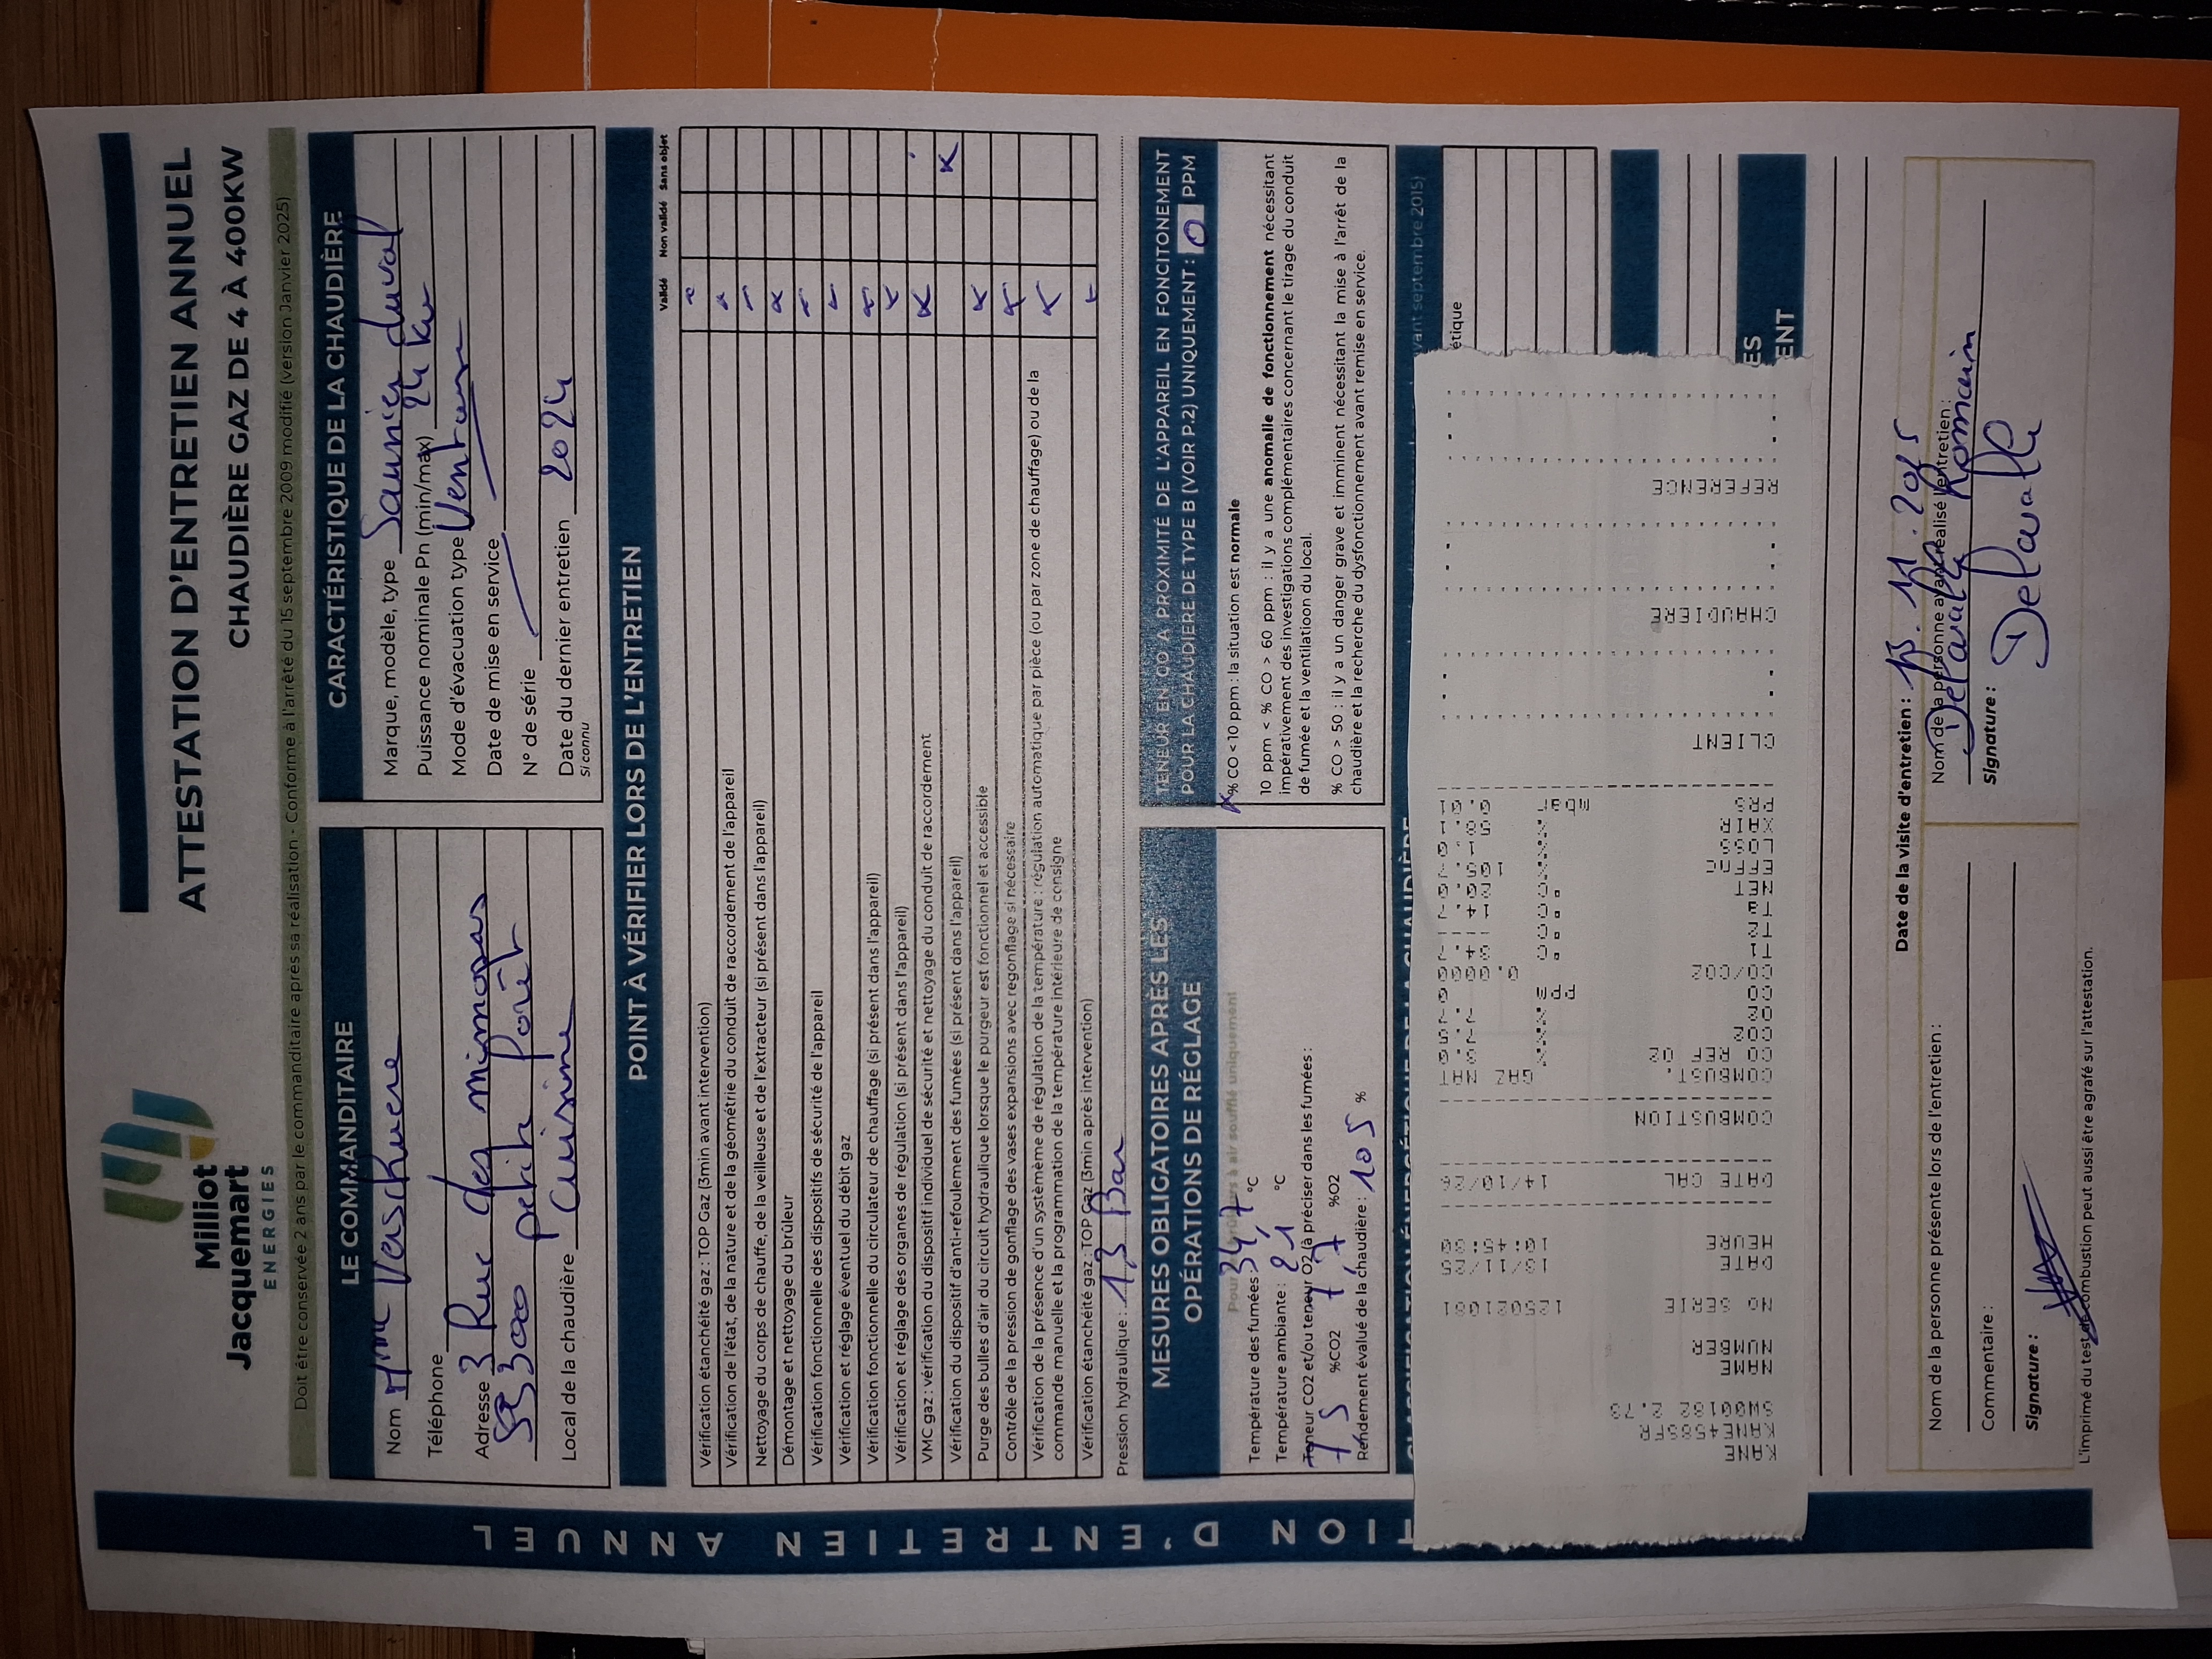 Milliot
Jacquemart
ENERGIES
ATTESTATION D'ENTRETIEN ANNUEL
CHAUDIÈRE GAZ DE 4 À 400KW
Doit être conservée 2 ans par le commanditaire après sa réalisation - Conforme à l'arrêté du 15 septembre 2009 modifié (version Janvier 2025)
LE COMMANDITAIRE
Nom Mme Verschuere
Téléphone
Adresse 3 Rue des mimosas
petite forêt
Local de la chaudière Cuisine
CARACTÉRISTIQUE DE LA CHAUDIÈRE
Marque, modèle, type Saunier duval
Puissance nominale Pn (min/max) 24 kw
Mode d'évacuation type Ventouse
Date de mise en service
N° de série
Date du dernier entretien 2024
Si connu
POINT À VÉRIFIER LORS DE L'ENTRETIEN
Validé Non validé Sans objet
Vérification étanchéité gaz : TOP Gaz (3min avant intervention)
Vérification de l'état, de la nature et de la géométrie du conduit de raccordement de l'appareil
Nettoyage du corps de chauffe, de la veilleuse et de l'extracteur (si présent dans l'appareil)
Démontage et nettoyage du brûleur
Vérification fonctionnelle des dispositifs de sécurité de l'appareil
Vérification et réglage éventuel du débit gaz
Vérification fonctionnelle du circulateur de chauffage (si présent dans l'appareil)
Vérification et réglage des organes de régulation (si présent dans l'appareil)
VMC gaz : vérification du dispositif individuel de sécurité et nettoyage du conduit de raccordement
Vérification du dispositif d'anti-refoulement des fumées (si présent dans l'appareil)
Purge des bulles d'air du circuit hydraulique lorsque le purgeur est fonctionnel et accessible
Contrôle de la pression de gonflage des vases expansions avec regonflage si nécessaire
Vérification de la présence d'un système de régulation de la température : régulation automatique par pièce (ou par zone de chauffage) ou de la
commande manuelle et la programmation de la température intérieure de consigne
Vérification étanchéité gaz : TOP Gaz (3min après intervention)
Pression hydraulique : 1,3 Bar
MESURES OBLIGATOIRES APRÈS LES
OPÉRATIONS DE RÉGLAGE
Pour brûleurs à air soufflé uniquement
Température des fumées 34,7 °C
Température ambiante : 21 °C
Teneur CO2 et/ou teneur O2 (à préciser dans les fumées :
7 5 %CO2 7,7 %O2
Rendement évalué de la chaudière : 105 %
TENEUR EN CO A PROXIMITÉ DE L'APPAREIL EN FONCITONEMENT
POUR LA CHAUDIÈRE DE TYPE B (VOIR P.2) UNIQUEMENT : 0 PPM
% CO < 10 ppm : la situation est normale
10 ppm < % CO > 60 ppm : il y a une anomalie de fonctionnement nécessitant
impérativement des investigations complémentaires concernant le tirage du conduit
de fumée et la ventilation du local.
% CO > 50 : il y a un danger grave et imminent nécessitant la mise à l'arrêt de la
chaudière et la recherche du dysfonctionnement avant remise en service.
CLASSIFICATION ÉNERGÉTIQUE DE LA CHAUDIÈRE
vant septembre 2015)
étique
ES
ENT
KANE
KANE+458SFR
SW00182 2.73
NAME
NUMBER
NO SERIE 125021081
DATE 13/11/25
HEURE 10:45:00
DATE CAL 14/10/26
COMBUSTION
COMBUST. GAZ NAT
CO REF O2
CO2
O2
CO
CO/CO2
T1
T2
NET
EFFNC
LOSS
XAIR
PRS mbar
CLIENT
CHAUDIERE
REFERENCE
Date de la visite d'entretien : 13.11.2025
Nom de la personne présente lors de l'entretien :
Commentaire :
Signature :
Nom de la personne ayant réalisé l'entretien :
Delavalle Romain
Signature :
Delavalle
L'imprimé du test de combustion peut aussi être agrafé sur l'attestation.
TION D'ENTRETIEN ANNUEL